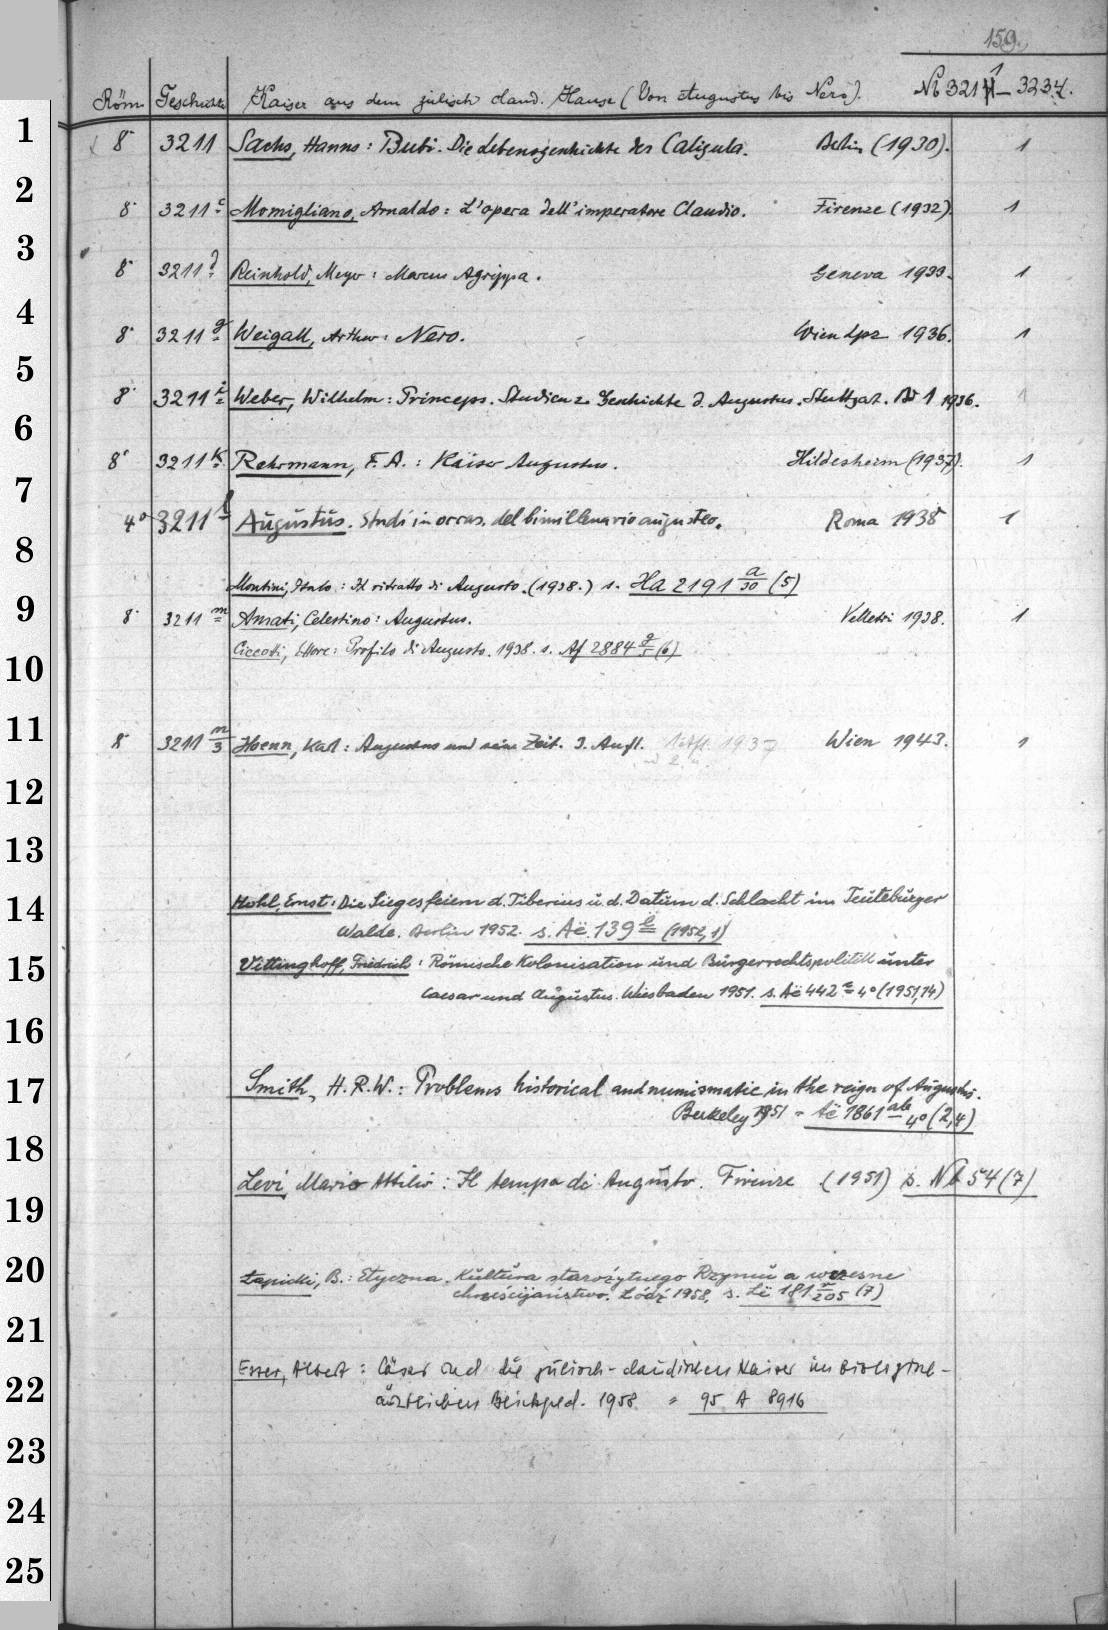 159.
Röm. Geschichte Kaiser aus dem julisch claud. Hause (Von Augustus bis Nero). № 3211 – 3234.
1 8° 3211 Sachs, Hanns: Bubi. Die Lebensgeschichte des Caligula. Berlin (1930). 1
2 8° 3211 c Momigliano, Arnaldo: L'opera dell'imperatore Claudio. Firenze (1932). 1
3 8° 3211 d Reinhold, Meyer: Marcus Agrippa. Geneva 1933. 1
4 8° 3211 g Weigall, Arthur: Nero. Wien Lpz 1936. 1
5
8° 3211 i Weber, Wilhelm: Princeps. Studien z. Geschichte d. Augustus. Stuttgat. Bd 1 1936. 1
6
8° 3211 k Rehrmann, F. A.: Kaiser Augustus. Hildesheim (1937). 1
7
4° 3211 l Augustus. Studi in occas. del bimillenario augusteo. Roma 1938 1
8
Montini, Italo: Il ritratto di Augusto. (1938.) s. Ha 2191 a/30 (5)
9 8° 3211 m Amati, Celestino: Augustus. Velletri 1938. 1
Ciccotti, Ettore: Profilo di Augusto. 1938. s. Af 2884 (6)
10
11 8° 3211 m/3 Hoenn, Karl: Augustus und seine Zeit. 3. Aufl. 1937 Wien 1943. 1
12
13
14 Hohl, Ernst: Die Siegesfeiern d. Tiberius u. d. Datum d. Schlacht im Teutoburger
Walde. Berlin 1952. s. Aë 139 (1952,1)
15 Vittinghoff, Friedrich: Römische Kolonisation und Bürgerrechtspolitik unter
Caesar und Augustus. Wiesbaden 1951. s. Aë 442 4° (1951,14)
16
17 Smith, H. R. W.: Problems historical and numismatic in the reign of Augustus.
Berkeley 1951 = Aë 1861 ab 4° (2,4)
18
Levi, Mario Attilio: Il tempo di Augusto. Firenze (1951) s. NA 54 (7)
19
20 Łapicki, B.: Etyczna Kultura starożytnego Rzymu a wczesne
chrześcijaństwo. Łódź 1958. s. Lë 181 /205 (7)
21
Esser, Albert: Cäsar und die julisch-claudischen Kaiser im biologisch-
22 ärztlichen Blickfeld. 1958 = 95 A 8916
23
24
25